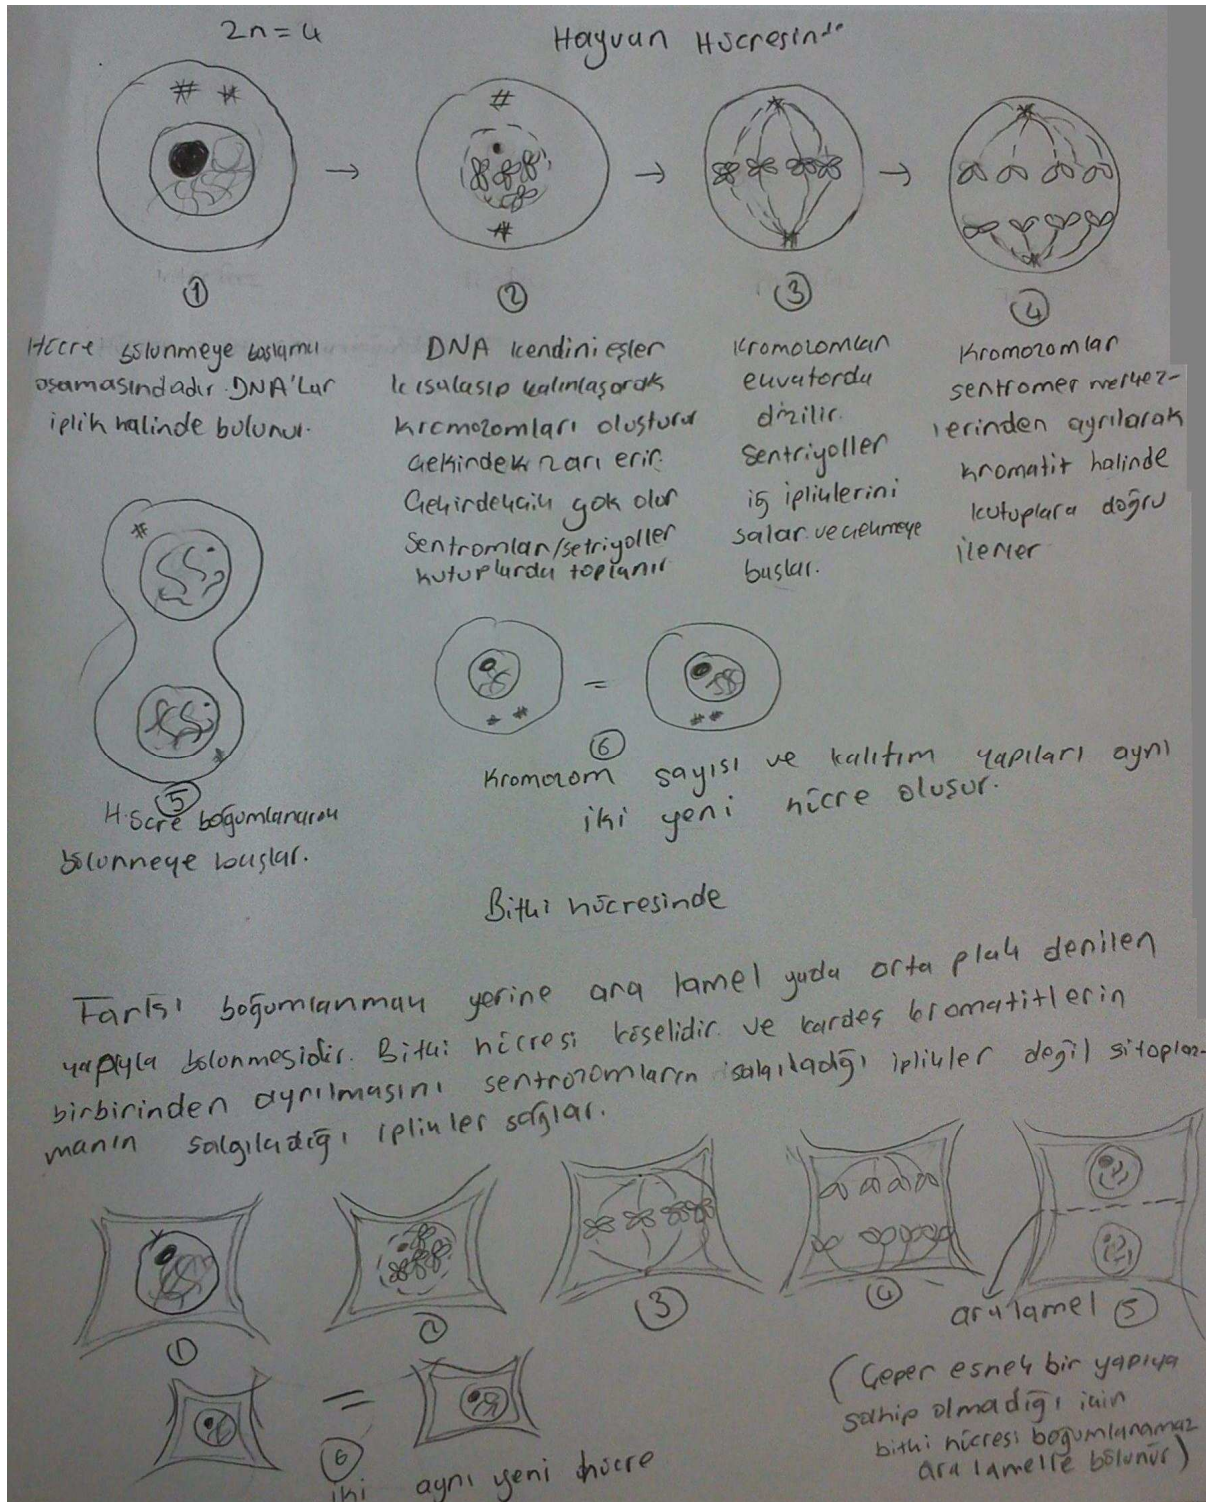 2n=4
Hayvan Hücresinde
①
②
③
④
Hücre bölünmeye başlama
aşamasındadır. DNA'lar
iplik halinde bulunur.
DNA kendini eşler
kısalaşıp kalınlaşarak
kromozomları oluşturur
Çekirdek zarı erir.
Çekirdekçik yok olur
Sentromlar/setriyoller
kutuplarda toplanır
Kromozomlar
ekvatorda
dizilir.
Sentriyoller
iğ ipliklerini
salar ve çekmeye
başlar.
Kromozomlar
sentromer merkez-
lerinden ayrılarak
kromatit halinde
kutuplara doğru
ilerler
⑤
Hücre boğumlanarak
bölünmeye başlar.
=
⑥
Kromozom sayısı ve kalıtım yapıları aynı
iki yeni hücre oluşur.
Bitki hücresinde
Farkı boğumlanmak yerine ara lamel yada orta plak denilen
yapıyla bölünmesidir. Bitki hücresi köşelidir. ve kardeş kromatitlerin
birbirinden ayrılmasını sentrozomların salgıladığı iplikler değil sitoplaz-
manın salgıladığı iplikler sağlar.
①
②
③
④
ara lamel ⑤
=
⑥
iki aynı yeni hücre
(Çeper esnek bir yapıya
sahip olmadığı için
bitki hücresi boğumlanamaz
ara lamelle bölünür)